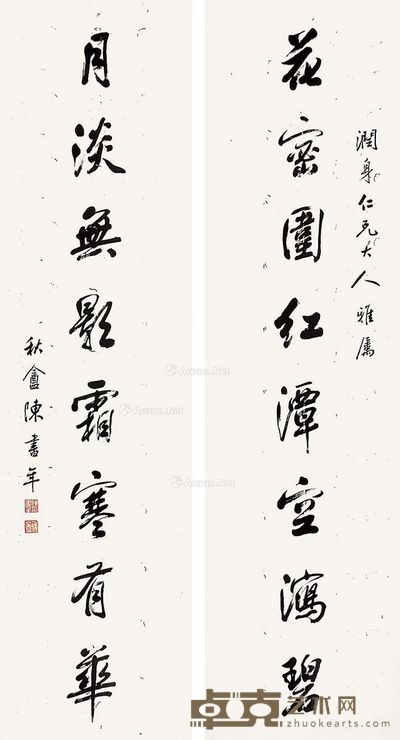 潤身仁兄大人雅屬
花密圍紅潭空瀉碧
月淡無影霜寒有華
秋盦陳書年
Artron.Net
Artron.Net
Artron.Net
卓克艺术网
zhuokearts.com